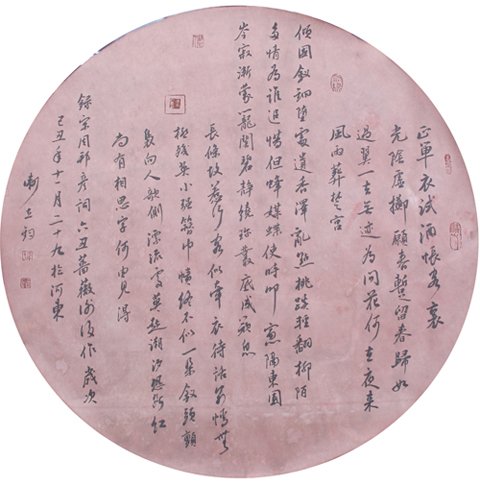 正單衣試酒悵客裏
光陰虛擲願春暫留春歸如
過翼一去无迹為問花何在夜來
風雨葬楚宮
傾國釵鈿墮處遺香澤亂點桃蹊輕翻柳陌
多情為誰追惜但蜂媒蝶使時叩窻隔東園
岑寂漸蒙籠闇碧靜繞珍叢底成嘆息
長條故惹行客似牽衣待話別情無
極殘英小強簪巾幘終不似一朵釵頭顫
裊向人欹側漂流處莫趁潮汐恐斷紅
尚有相思字何由見得
錄宋周邦彥詞六丑薔薇謝後作歲次
己丑年十一月二十九於河東